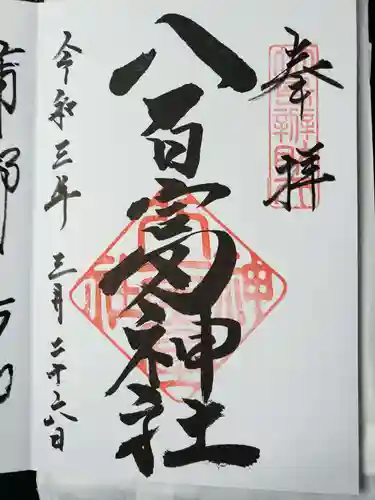 奉拝
八百富神社
令和三年 三月二十六日